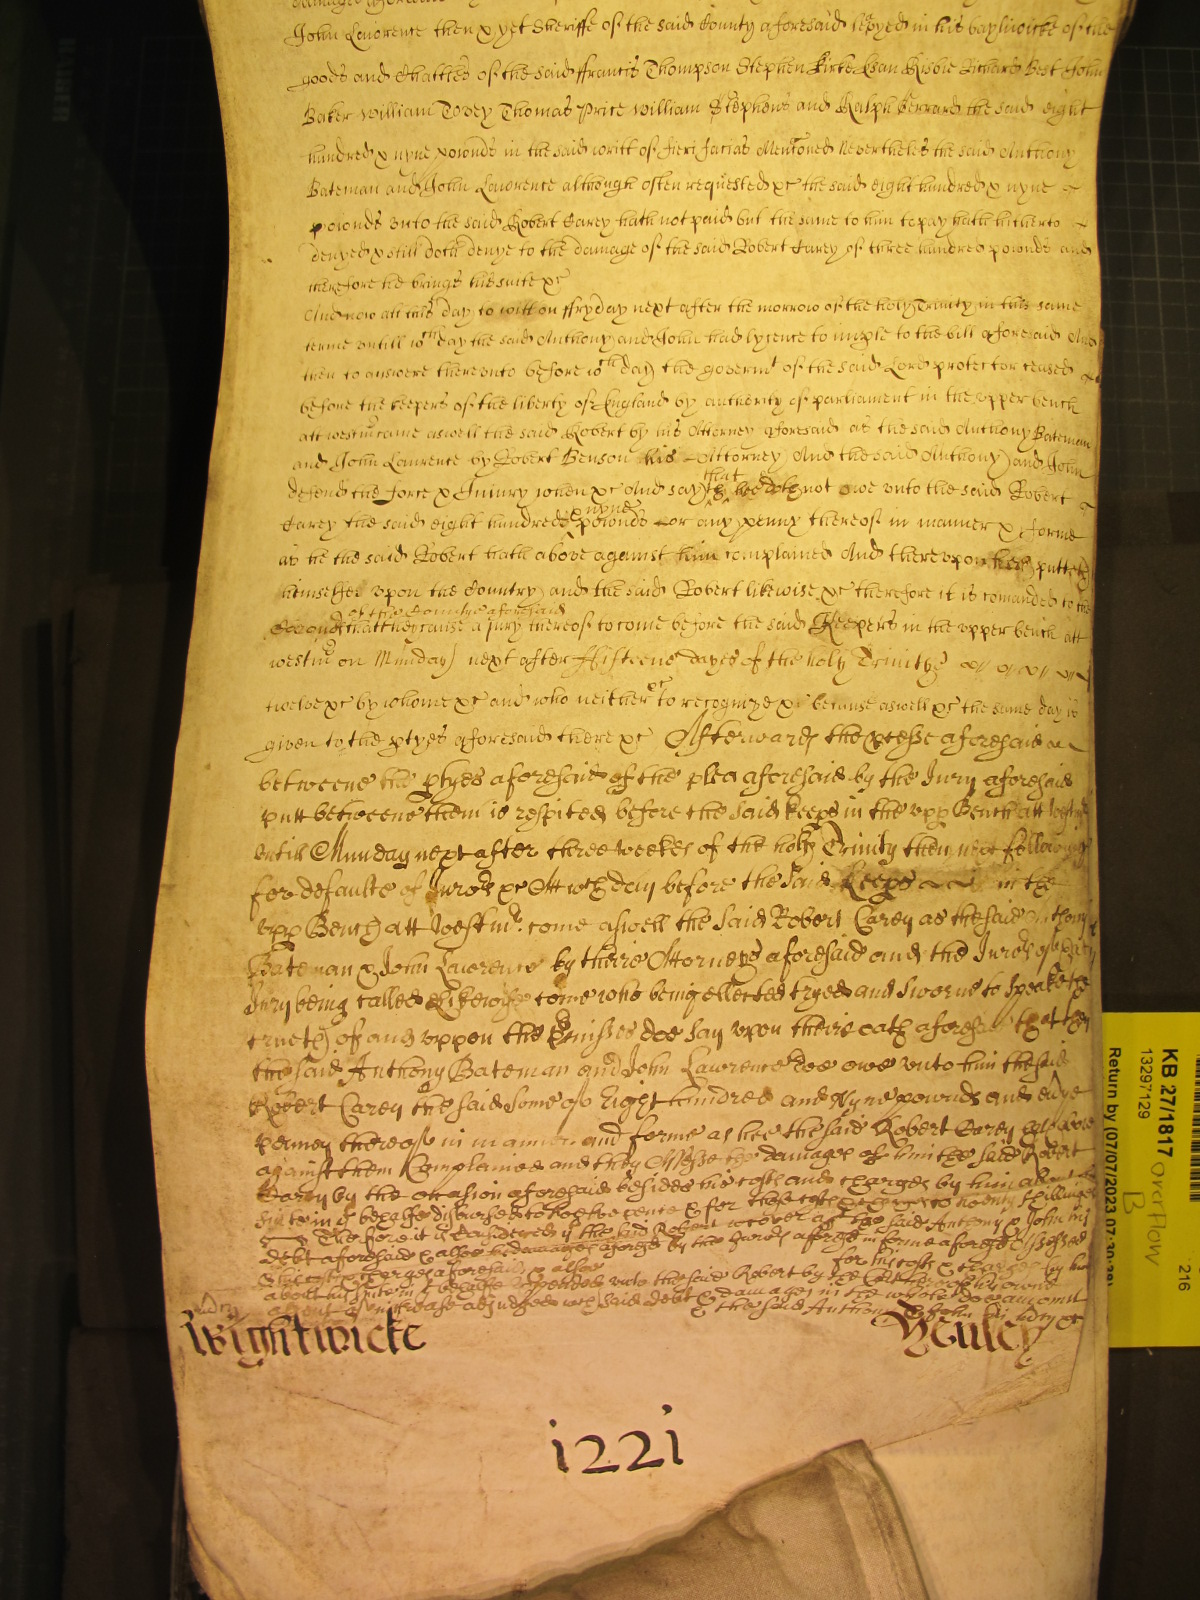 John Lawrence then & yet Sheriffe of the said County aforesaid levyed in his baylwicke of the
goods and Chattles of the said ffrancis Thompson Stephen Kirke Richard Best John
Baker William Tovey Thomas Price William Stephens and Ralph Gerrard the said eight
hundred & nyne pownds in the said writt of fieri facias Mentoned Nevertheles the said Anthony
Bateman and John Lawrence although often requested &c the said eight hundred & nyne
pownds vnto the said Robert Carey hath not paid but the same to him to pay hath hitherto
denyed & still doth denye to the damage of the said Robert Carey of three hundred pownds and
therefore he brings this suite &c
And now att this day to witt on ffryday next after the morrow of the holy Trinity in this same
terme vntill wch day the said Anthony and John had lycence to imple to the bill aforesaid And
then to answere therevnto before wch day the governmt of the said Lord protector ceased
before the keepers of the liberty of England by authority of parliament in the vpper bench
att westmr came aswell the said Robert by his Attorney aforesaid as the said Anthony Bateman
and John Laurence by Robert Benson his Attorney And the said Anthony and John
defend the force & Iniury when &c And say that hee doth not owe vnto the said Robert
Carey the said eight hundred & nyne pownds or any penny thereof in manner & forme
as he the said Robert hath above against him complained And therevpon hee putteth
himselfe vpon the Country and the said Robert likewise &c therefore it is comanded to the
of the County aforesaid
that they cause a jury thereof to come before the said Keepers in the vpper bench att
westmr on Munday next after ffifteene dayes of the holy Trinity
twelve &c by whome &c and who neither &c to recognize &c because aswell &c the same day is
given to the ptyes aforesaid there &c Afterwards the pcesse aforesaid
betweene the ptyes aforesaid of the plea aforesaid by the Jury aforesaid
putt betweene them is respited before the said keeps in the vpp Bench att westmr
vntill Munday next after three weekes of the holy Trinity then next following
for defaulte of Jurors &c Att wch day before the said Keeps in the
vpp Bench att westmr. come aswell the said Robert Carey as the said Anthony
Bateman & John Lawrence by theire Attorneys aforesaid and the Jurors of
Jury being called likewise come who being ellected tryed and sworne to speake the
trueth of and vppon the pmisses doe say vpon theire oath aforesaid that
the said Anthony Bateman and John Lawrence doe owe vnto him the said
Robert Carey the said Some of Eight hundred and Nyne pownds and every
penney thereof in manner and forme as hee the said Robert Carey above
against them Complained and they Assesse the damages of him the said Robert
Carey by the occasion aforesaid besides his costs and charges by him about his
suite in yt behalfe disbursed to twelve pence & for those costs & charges to twenty shillings
Therefore it is Considered yt the said Robert recover agt the said Anthony & John his
debt aforesaid & alsoe his damages aforesd by the Jurors aforesd in forme aforesd Assessed
for his costs & charges by him
about his suite in yt behalfe expended vnto the said Robert by the Court here of his owne
assent of increase adjudged wch said debt & damages in the whole doe amount
& the said Anthony & John in mercy &c
Wightwicke
1221
KB 27/1817 overflow
B
13297129
Return by (07/07/2023 07:30:39)
216